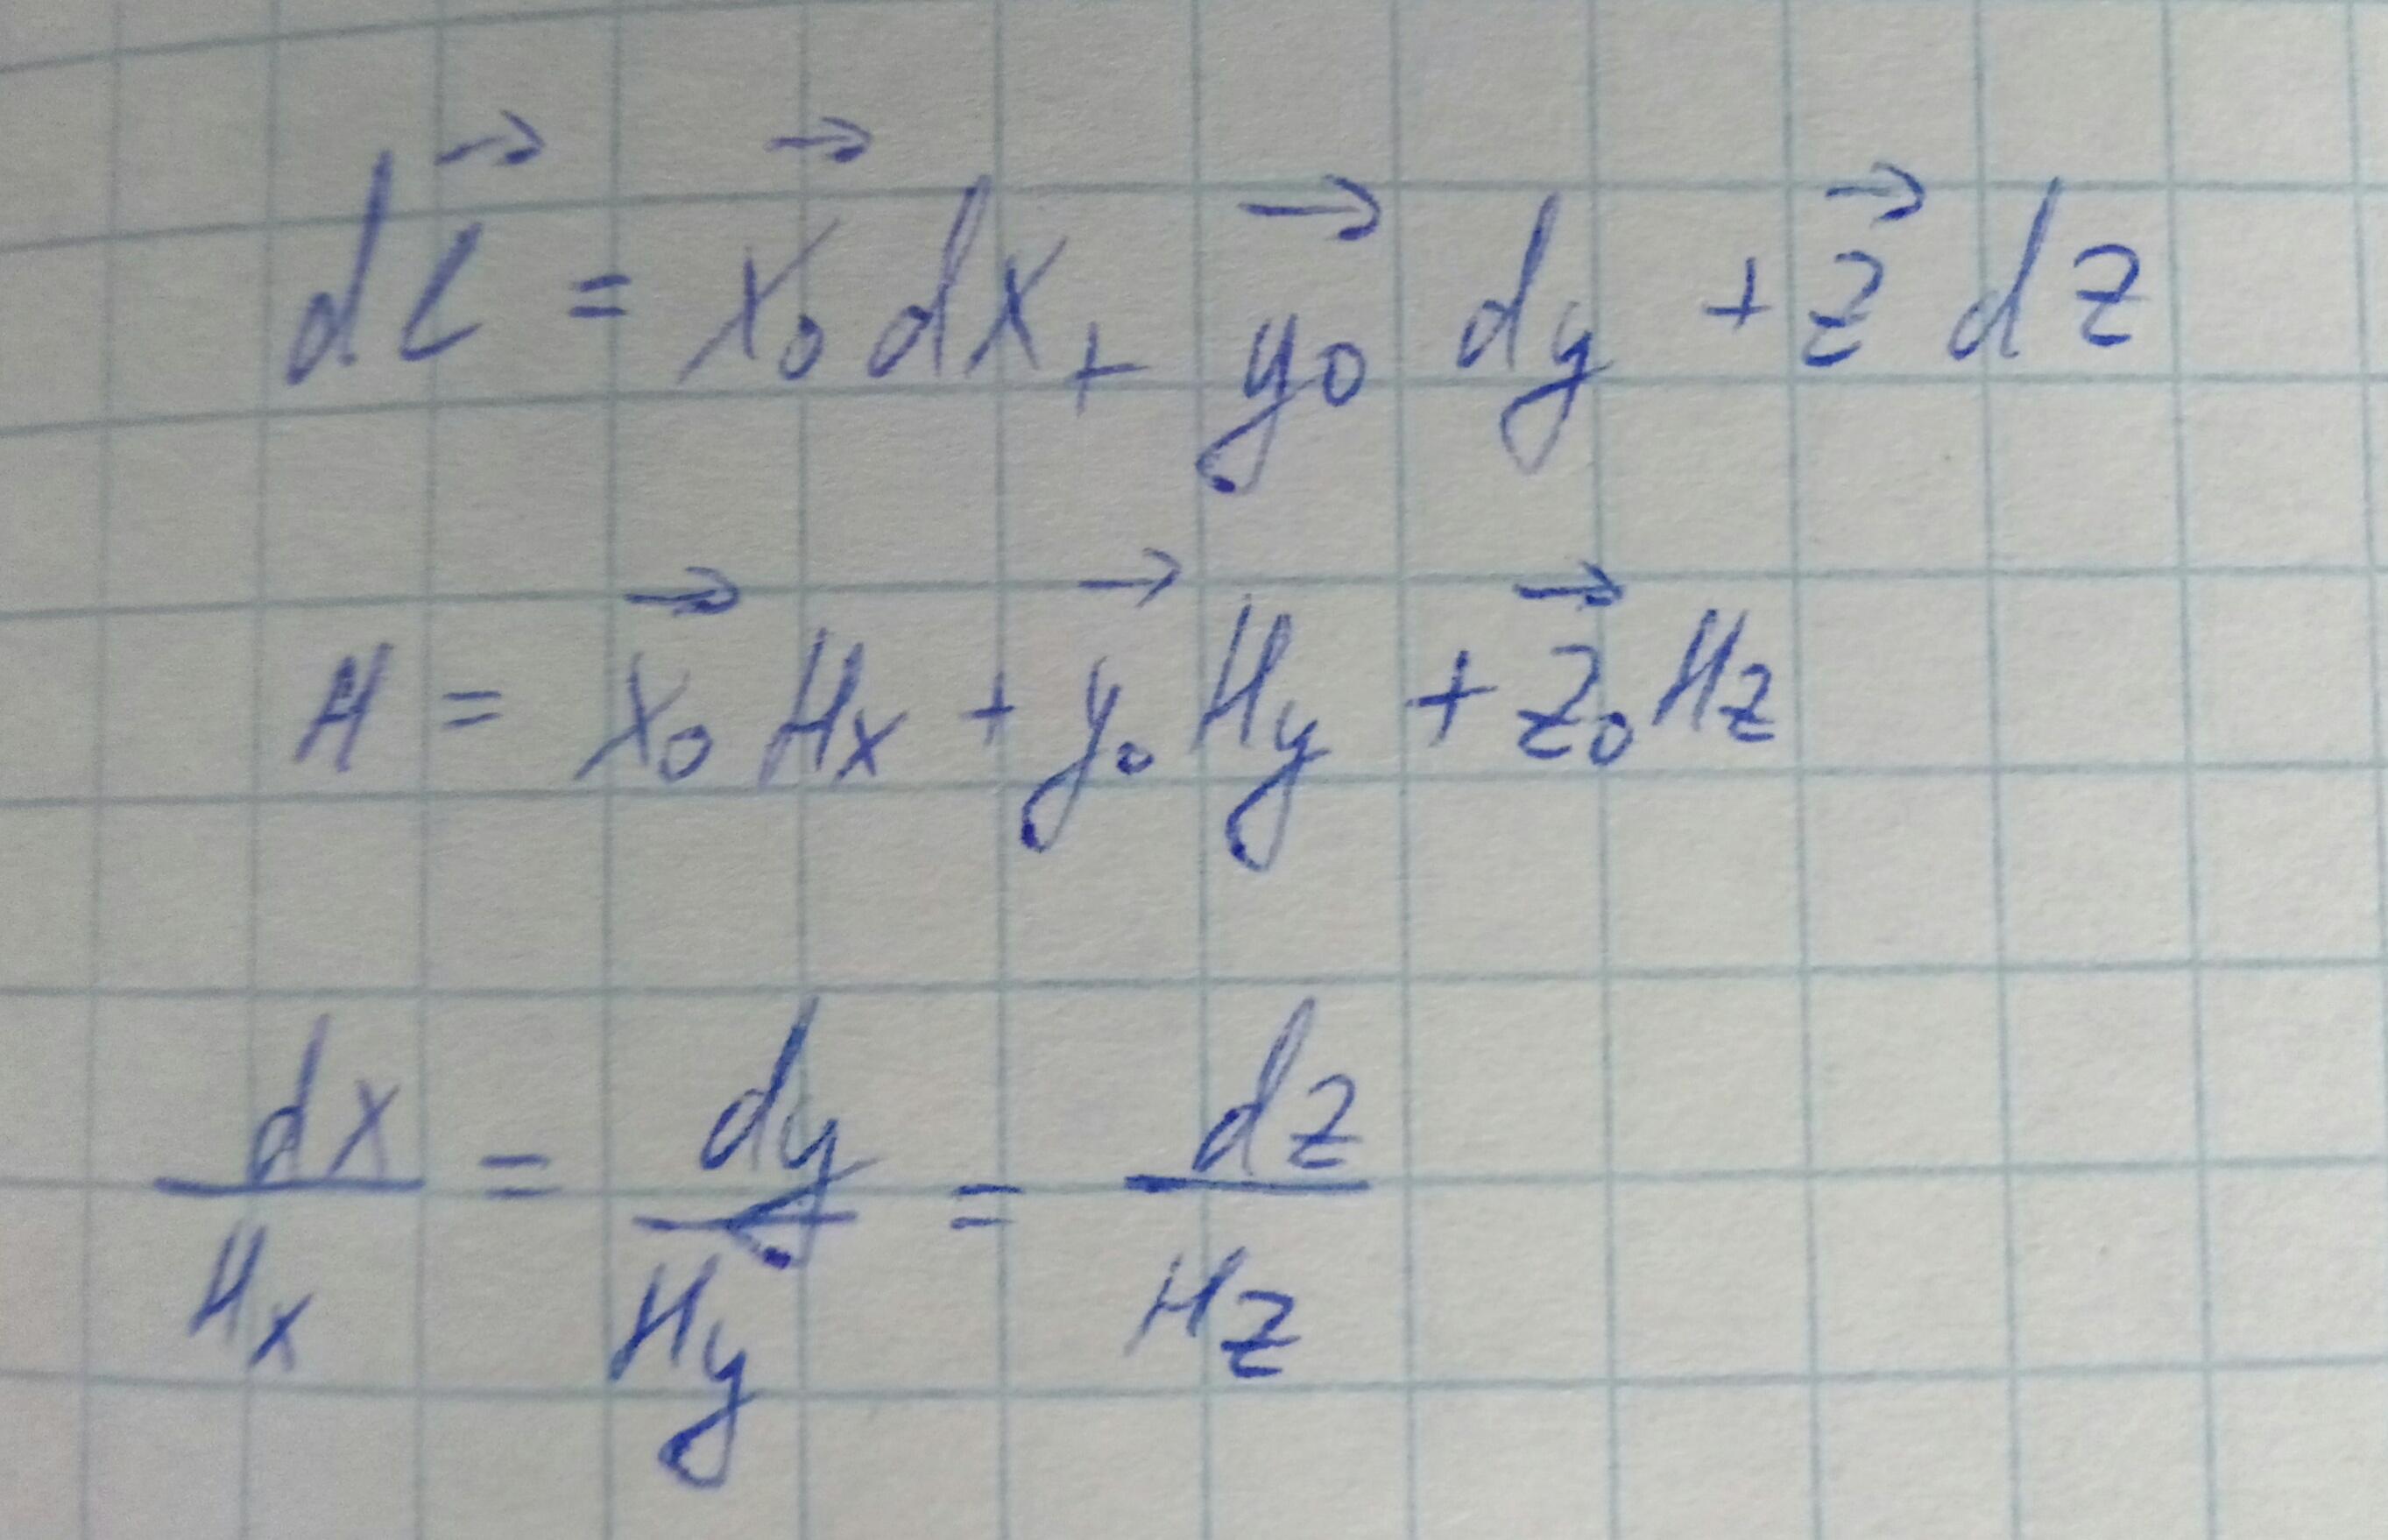 d\vec{l} = \vec{x_0} dx + \vec{y_0} dy + \vec{z} dz
H = \vec{x_0} H_x + \vec{y_0} H_y + \vec{z_0} H_z
\frac{dx}{H_x} = \frac{dy}{H_y} = \frac{dz}{H_z}